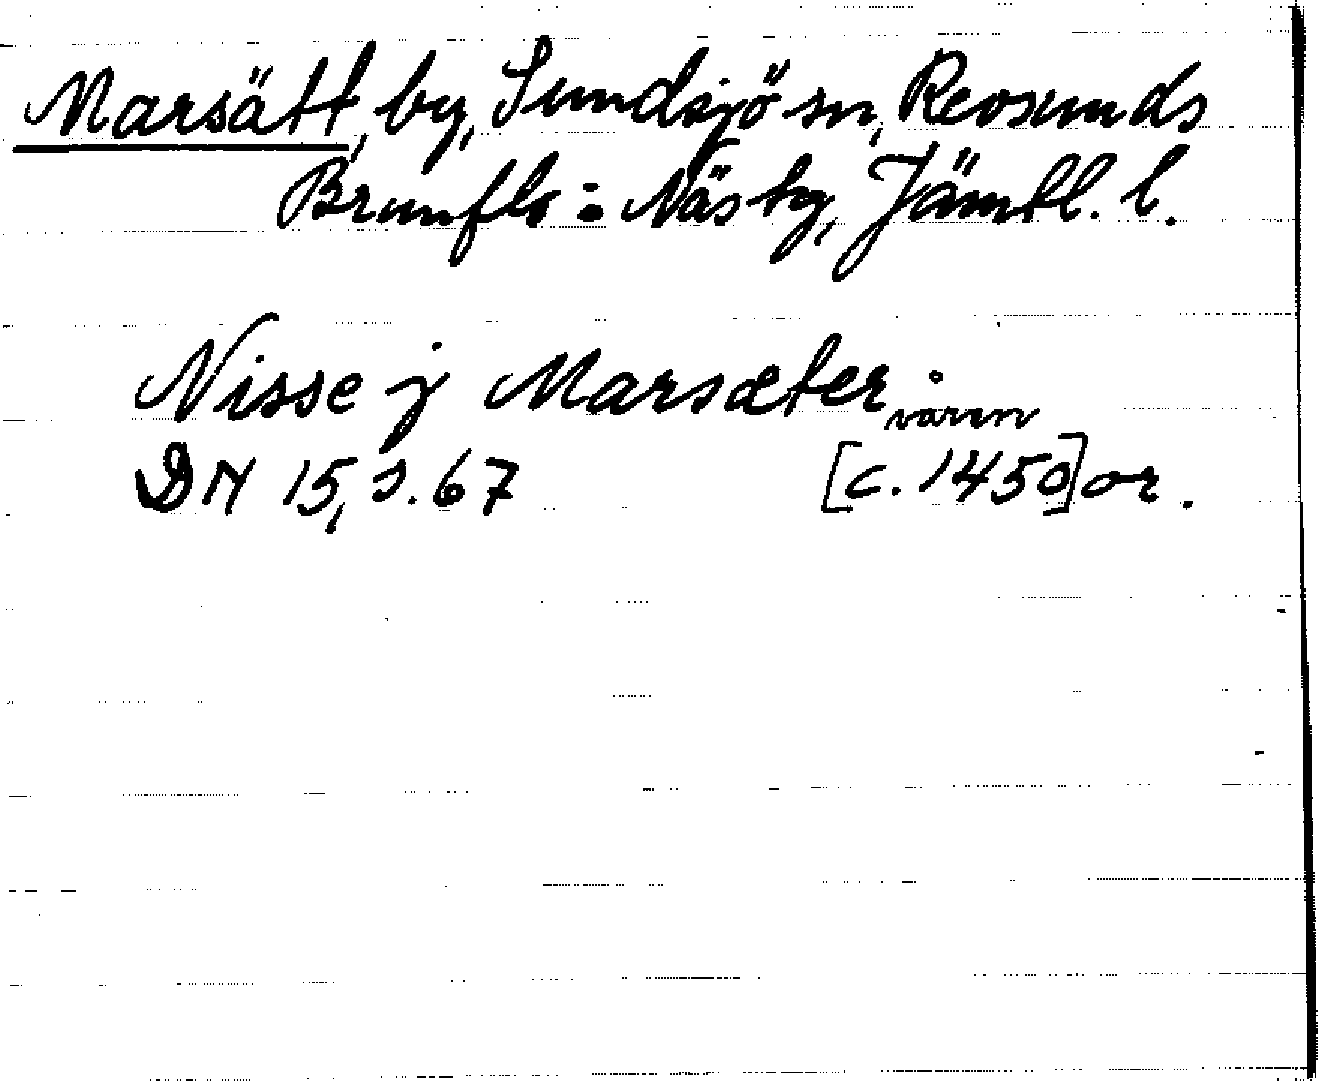 Marsätt, by, Sundsjö sn, Revsunds
Brunflo-Näs tg, Jämtl. l.
Nisse j Marsæter
DN 15, s. 67 [c. 1450] or.